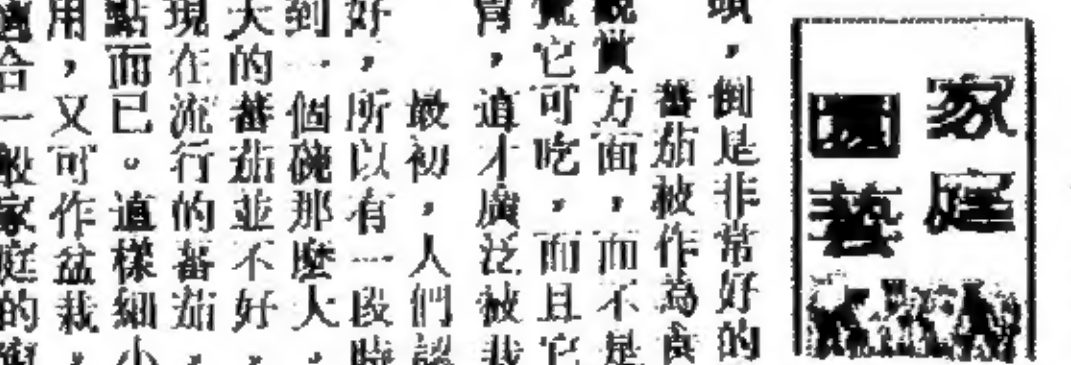 家庭
園藝
，倒是非常好的
蕃茄被作為食
觀賞方面，而不是
它可吃，而且它
，這才廣泛被栽
最初，人們認
好，所以有一段時
到一個碗那麼大，
大的蕃茄並不好，
現在流行的蕃茄，
點而已。這樣細小
用，又可作盆栽，
適合一般家庭的